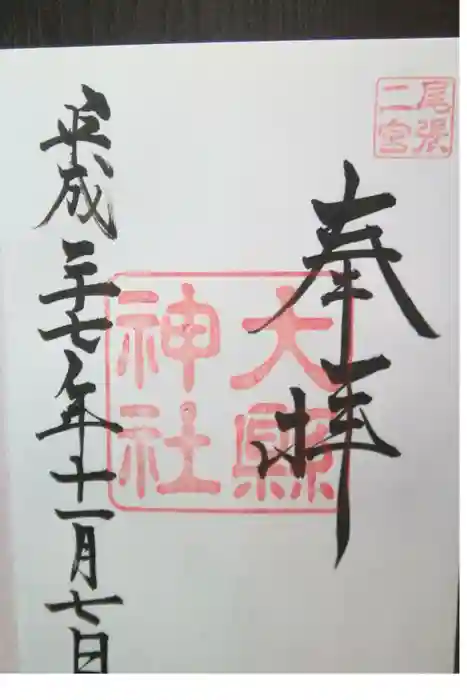 尾張
二宮
奉拝
大縣
神社
平成二十七年十一月七日